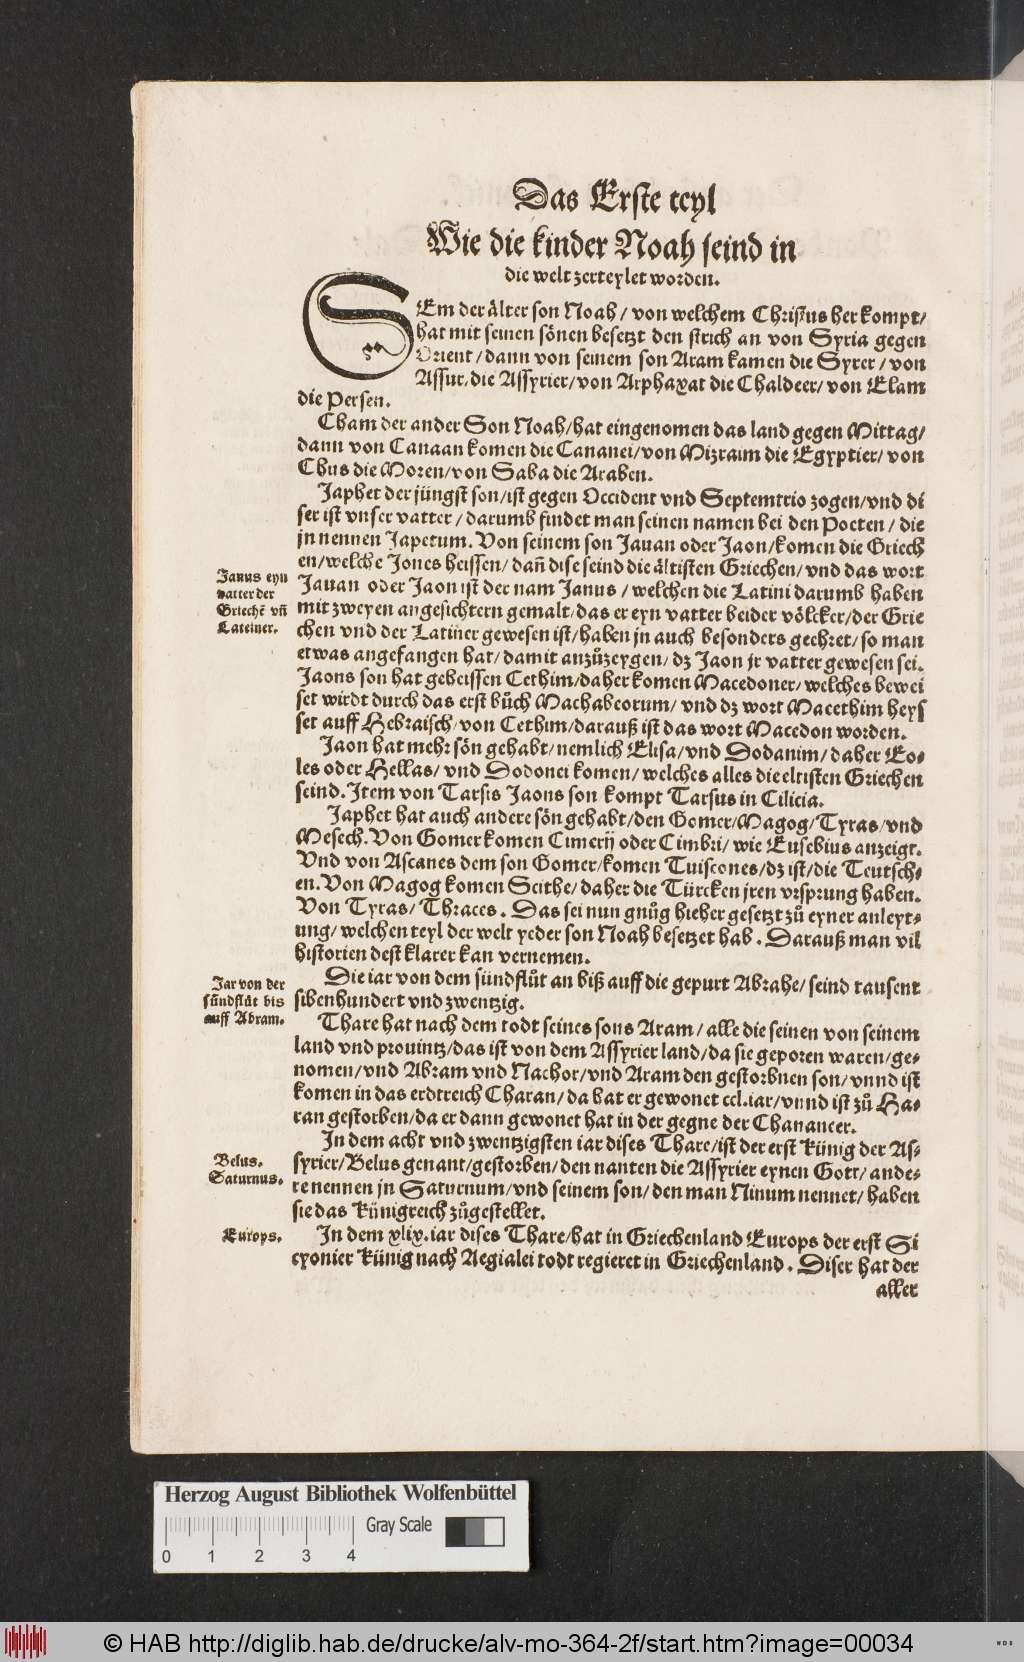 Das Erste teyl
Wie die kinder Noah seind in
die welt zerteylet worden.
SEm der ålter son Noah / von welchem Christus her kompt/
hat mit seinen sönen besetzt den strich an von Syria gegen
Orient / dann von seinem son Aram kamen die Syrer / von
Assur, die Assyrier/von Arphaxat die Chaldeer/ von Elam
die Persen.
Cham der ander Son Noah/hat eingenomen das land gegen Mittag/
dann von Canaan komen die Cananei/von Mizraim die Egyptier/ von
Chus die Moren/von Saba die Araben.
Japhet der jüngst son/ist gegen Occident vnd Septemtrio zogen/vnd di
ser ist vnser vatter / darumb findet man seinen namen bei den Poeten / die
jn nennen Japetum. Von seinem son Jauan oder Jaon/komen die Griech
en/welche Jones heissen/ dañ dise seind die åltisten Griechen/ vnd das wort
Jauan oder Jaon ist der nam Janus / welchen die Latini darumb haben
mit zweyen angesichtern gemalt/das er eyn vatter beider völcker/der Grie
chen vnd der Latiner gewesen ist/haben jn auch besonders geehret/ so man
etwas angefangen hat/damit anzůzeygen/ dz Jaon jr vatter gewesen sei.
Jaons son hat geheissen Cethim/daher komen Macedoner/ welches bewei
set wirdt durch das erst bůch Machabeorum/ vnd dz wort Macethim heyß
set auff Hebraisch/von Cethim/darauß ist das wort Macedon worden.
Jaon hat mehr sön gehabt/nemlich Elisa/vnd Dodanim/daher Eo-
les oder Hellas/ vnd Dodonei komen/ welches alles die eltisten Griechen
seind. Item von Tarsis Jaons son kompt Tarsus in Cilicia.
Japhet hat auch andere sön gehabt/den Gomer/Magog/Tyras/vnd
Mesech. Von Gomer komen Cimerij oder Cimbri/ wie Eusebius anzeigt.
Vnd von Ascanes dem son Gomer/komen Tuiscones/dz ist/die Teutsch-
en. Von Magog komen Scithe/ daher die Türcken jren vrsprung haben.
Von Tyras/ Thraces. Das sei nun gnůg hieher gesetzt zů eyner anleyt-
ung/ welchen teyl der welt yeder son Noah besetzet hab. Darauß man vil
historien dest klarer kan vernemen.
Die iar von dem sündflůt an biß auff die gepurt Abrahe/ seind tausent
sibenhundert vnd zwentzig.
Thare hat nach dem todt seines sons Aram/ alle die seinen von seinem
land vnd prouintz/das ist von dem Assyrier land/da sie geporen waren/ge-
nomen/vnd Abram vnd Nachor/vnd Aram den gestorbnen son/ vnnd ist
komen in das erdtreich Charan/ da hat er gewonet ccl.iar/vnnd ist zů Ha-
ran gestorben/da er dann gewonet hat in der gegne der Chananeer.
In dem acht vnd zwentzigsten iar dises Thare/ist der erst künig der As-
syrier/Belus genant/gestorben/den nanten die Assyrier eynen Gott/ ande-
re nennen jn Saturnum/vnd seinem son/ den man Ninum nennet/ haben
sie das künigreich zůgestellet.
In dem xlix. iar dises Thare/hat in Griechenland Europs der erst Si
cyonier künig nach Aegialei todt regieret in Griechenland. Diser hat der
aller
Janus eyn
vatter der
Griechē vñ
Lateiner.
Jar von der
sündflůt bis
auff Abram.
Belus.
Saturnus.
Europs.
Herzog August Bibliothek Wolfenbüttel
Gray Scale
0 1 2 3 4
© HAB http://diglib.hab.de/drucke/alv-mo-364-2f/start.htm?image=00034